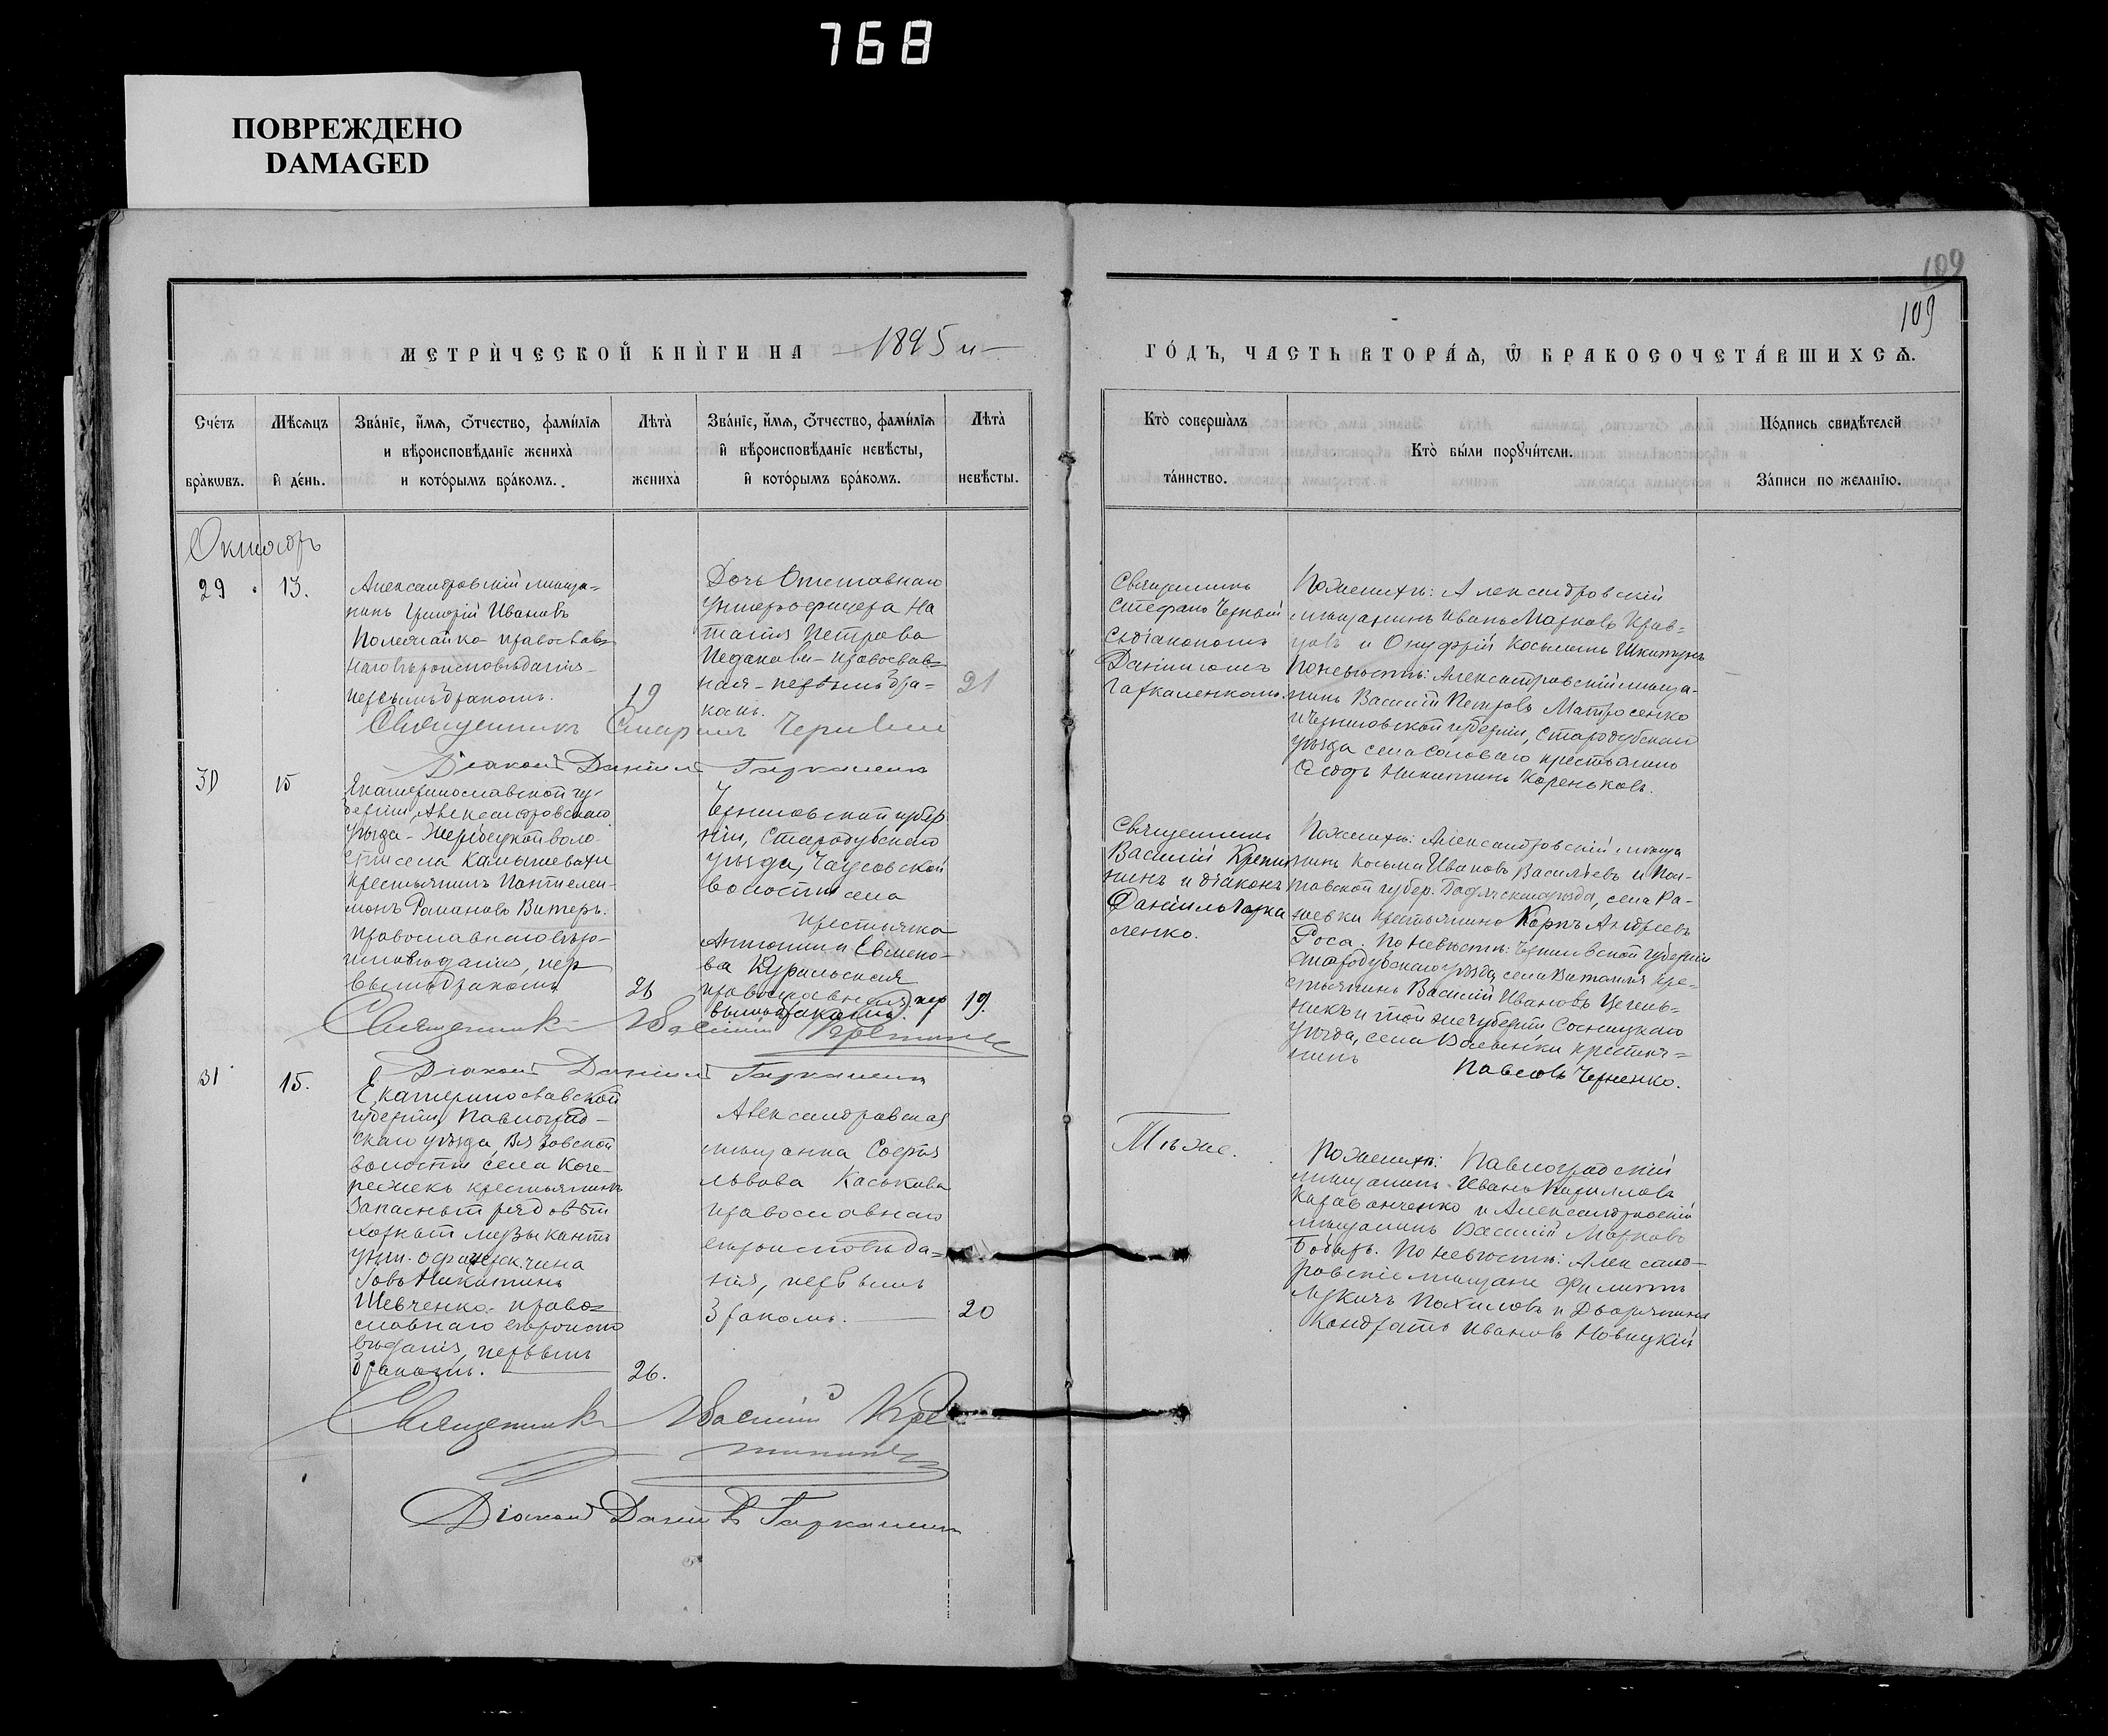 768
ПОВРЕЖДЕНО
DAMAGED
109
109
МЕТРИ́ЧЕСКОЙ КНИ́ГИ НА 1895 й
ГО́ДЪ, ЧАСТЬ ВТОРА́Ѧ, Ѿ БРАКОСОЧЕТА́ВШИХСѦ.
Сче́тъ бра́кѡвъ.
Мѣ́сѧцъ и҆ де́нь.
Зва́нїе, и҆́мѧ, ѻ҆́тчество, фами́лїѧ
и вѣроисповѣ́данїе жениха̀
и кото́рымъ бра́комъ.
Лѣта̀ жениха̀
Зва́нїе, и҆́мѧ, ѻ҆́тчество, фами́лїѧ
и҆ вѣроисповѣ́данїе невѣ́сты,
и҆ кото́рымъ бра́комъ.
Лѣта̀ невѣ́сты.
Кто̀ соверша́лъ
та́инство.
Кто̀ бы́ли порꙋчи́тели.
По́дпись свидѣ́телей
За́писи по жела́нїю.
Октябрь
29
13.
Александровскій мѣща-
нинъ Григорій Ивановъ
православ-
наго вѣроисповѣданія
первымъ бракомъ.
19
Дочь Отставнаго
Унтеръ-офицера На
талія Петрова
православ-
ная - первымъ бра-
комъ.
21
Священникъ
Стефанъ Черный
съ діакономъ
Даніиломъ
Гаркаленкомъ.
По женихѣ: Александровскій
мѣщанинъ Иванъ Марковъ Крав-
цовъ и Онуфрій Косьминъ
По невѣстѣ: Александровскій мѣща-
нинъ Василій Петровъ Матросенко
и Черниговской губерніи, Стародубскаго
уѣзда села Соловаго крестьянинъ
Никитинъ Кореньковъ.
Священникъ Стефанъ Черный
Діаконъ Даніилъ Гаркаленко
30
15
Екатеринославской гу-
берніи, Александровскаго
уѣзда - Жеребецкой воло-
сти села Камышевахи
крестьянинъ Пантелеи-
монъ Романовъ Витеръ.
православнаго вѣро-
исповѣданія, пер
вымъ бракомъ
Черниговской губер
ніи, Стародубскаго
уѣзда, Чаусовской
волости села
крестьянка
Антонина Евмено-
ва Курильская
православная, пер
вымъ бракомъ.
19.
Священникъ
Василій Крепи
нинъ и діаконъ
Даніилъ Гарка
ленко.
По женихѣ: Александровскій мѣща
нинъ Косьма Ивановъ Васильевъ и Пол-
тавской губер. Гадячскаго уѣзда, села Ра-
шевки крестьянинъ Карпъ Андреевъ
Роса. По невѣстѣ: Черниговской губерніи
Стародубскаго уѣзда села кре-
стьянинъ Василій Ивановъ
и той же губерніи Сосницкаго
уѣзда, села Волынки крестья-
нинъ Павелъ Черненко.
Священникъ Василій Крепининъ
Діаконъ Даніилъ Гаркаленко
31
15.
Екатеринославской
губерніи, Павлоград-
скаго уѣзда, Вязовской
волости села Коче-
режекъ крестьянинъ
Запасный рядовой
музыкантъ
унт.-офицерск. чина
Іовъ Никитинъ
Шевченко - право-
славнаго вѣроиспо
вѣданія, первымъ
бракомъ.
26.
Александровская
мѣщанка Софія
Львова Каськова
православнаго
вѣроисповѣда-
нія, первымъ
бракомъ.
20
Тѣ же.
По женихѣ: Павлоградскій
мѣщанинъ Иванъ Кирилловъ
и Александровскій
мѣщанинъ Василій Марковъ
Бобырь. По невѣстѣ: Александ-
ровскіе мѣщане Филиппъ
Лукичъ Похиловъ и Дворянинъ
Кондратъ Ивановъ Новицкій
Священникъ Василій Кре
пининъ
Діаконъ Даніилъ Гаркаленко